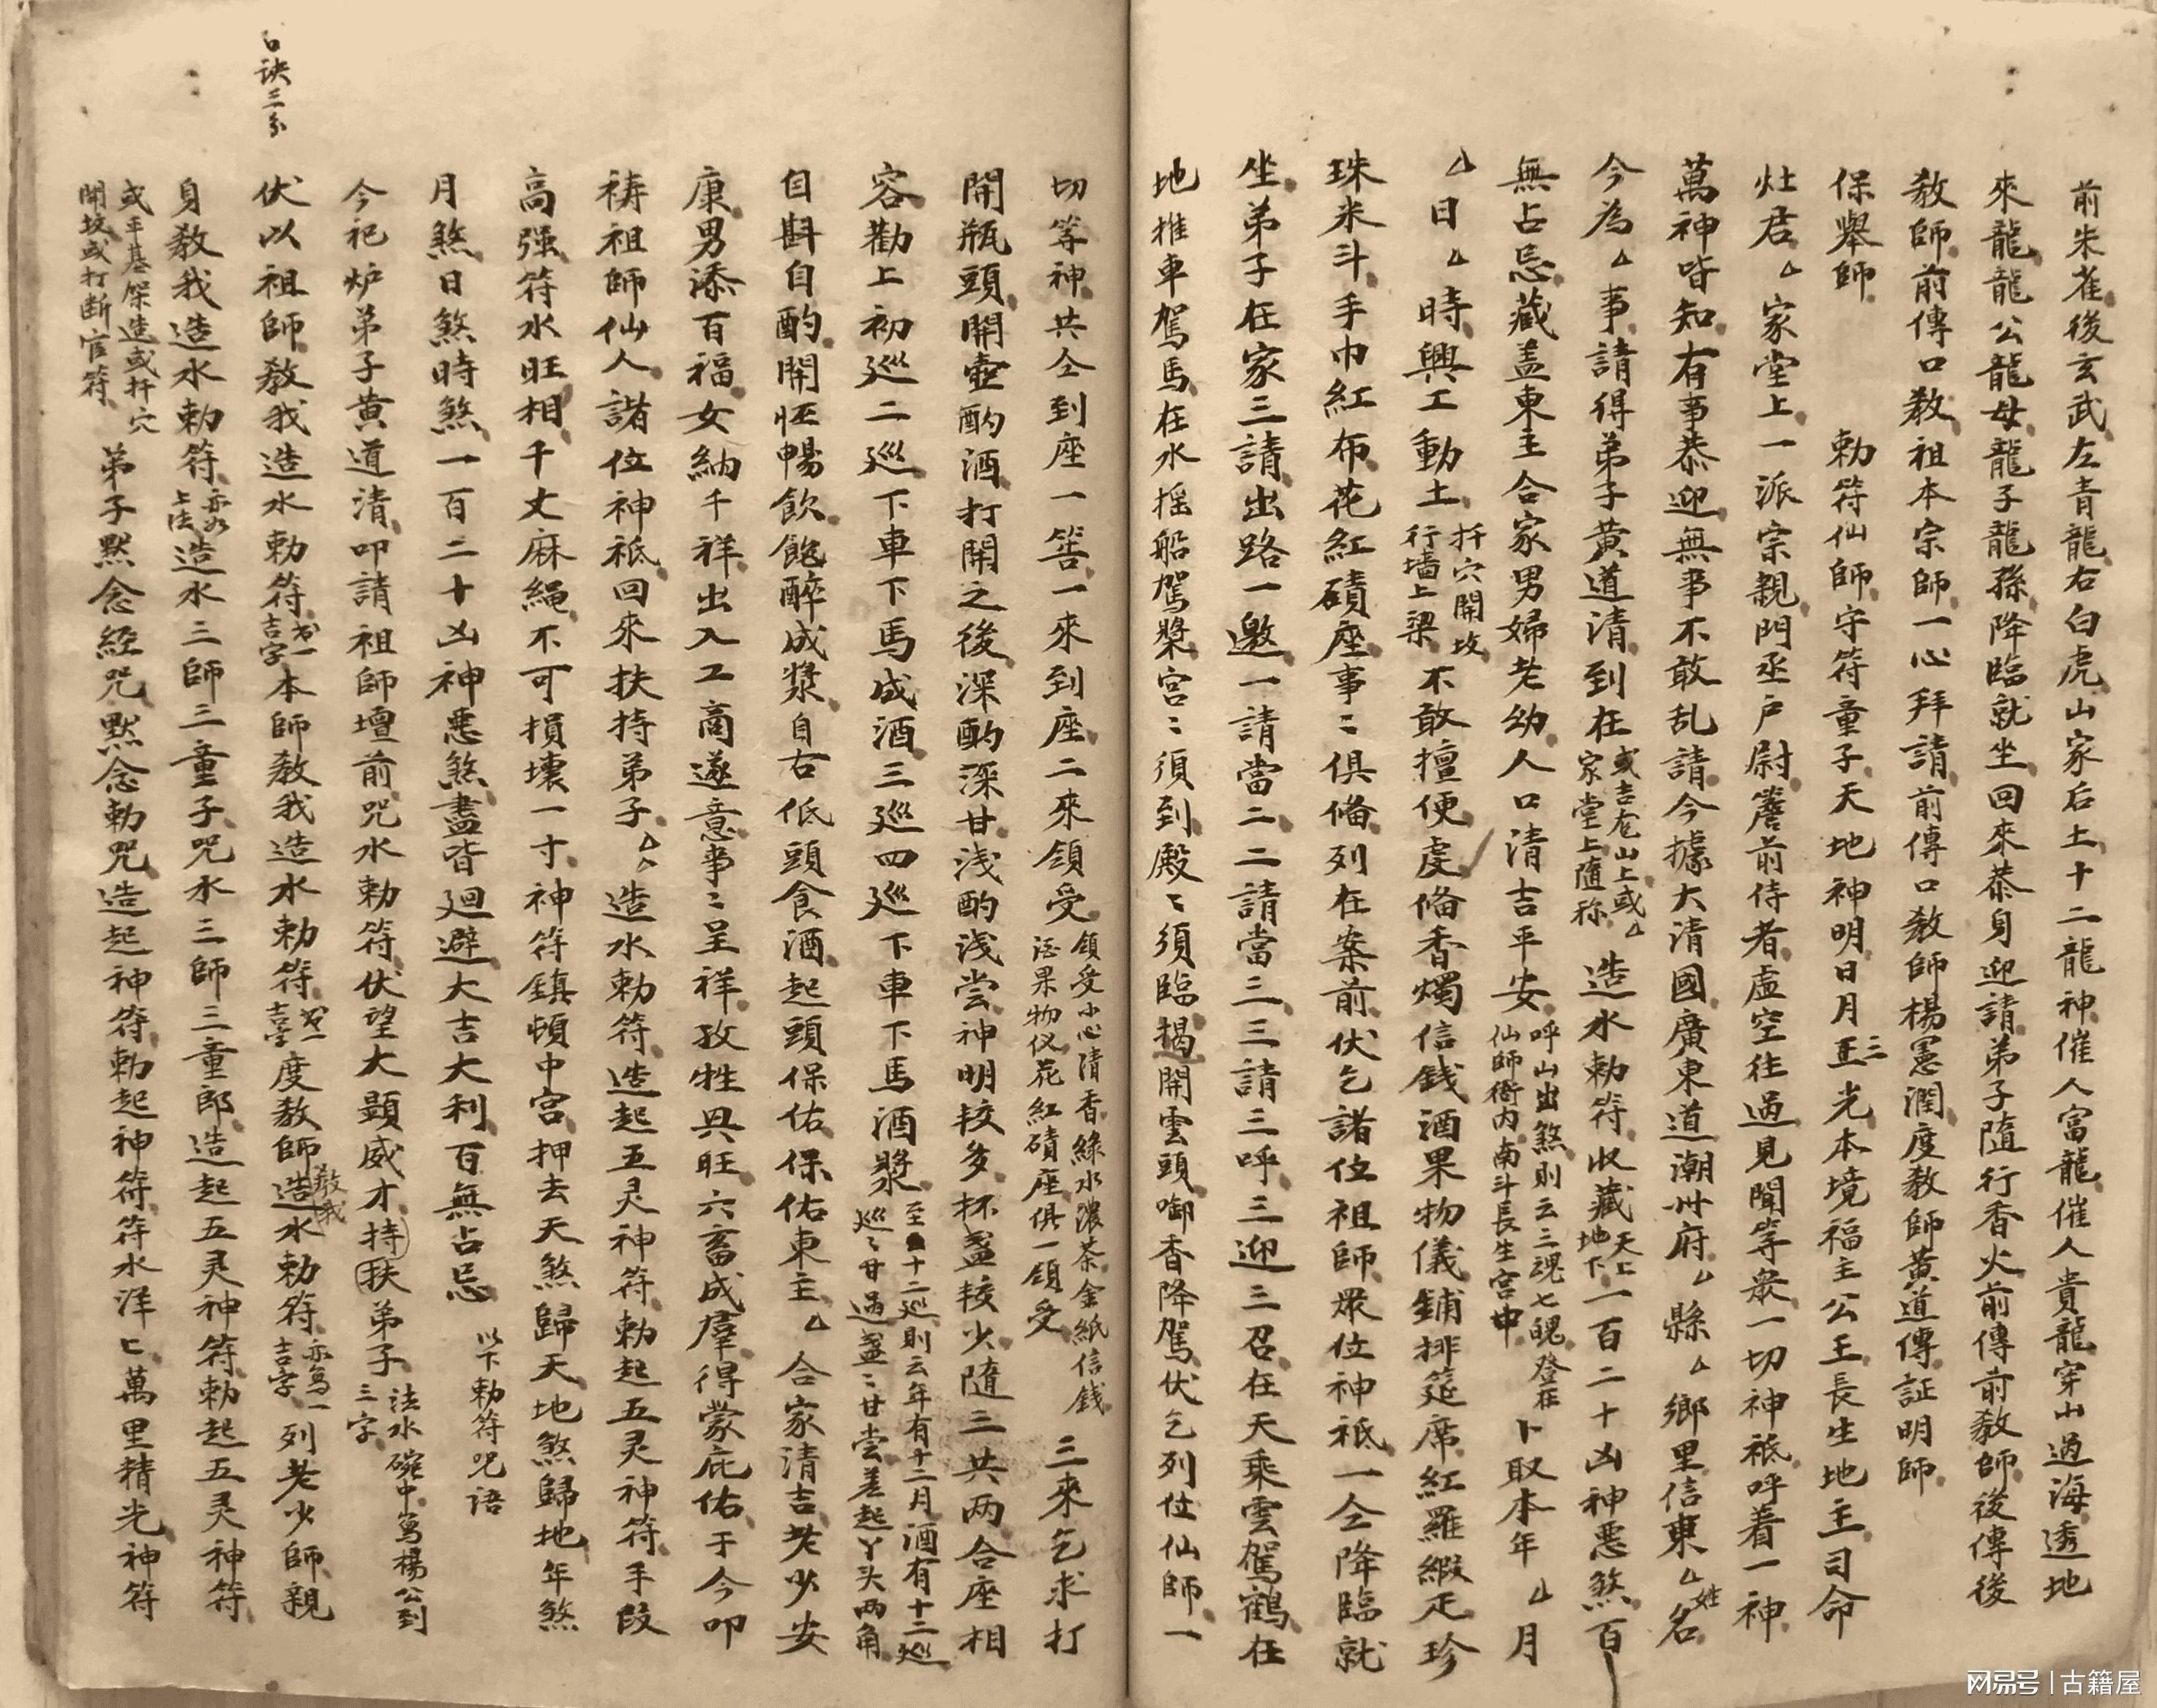 前朱雀後玄武左青龍右白虎山家后土十二龍神催人富龍催人貴龍穿山過海透地
來龍龍公龍母龍子龍孫降臨就坐回來恭身迎請弟子隨行香火前傳前教師後傳後
教師前傳口教祖本宗師一心拜請前傳口教師楊憲潤度教師黃道傳証明師
保舉師 勅符仙師守符童子天地神明日月三正光本境福主公王長生地主司命
灶君厶家堂上一派宗親門丞戶尉簷前侍者虛空往過見聞等衆一切神祗呼着一神
萬神皆知有事恭迎無事不敢乱請今據大清國廣東道潮州府厶縣厶鄉里信東厶姓名
今為厶事請得弟子黃道清到在或吉宅山上或厶家堂上隨称造水勅符收藏天上地下一百二十凶神惡煞百
無占忌藏盖東主合家男婦老幼人口清吉平安呼山出煞則云三魂七魄登在仙師衙内南斗長生宮中卜取本年厶月
厶日厶時興工動土扦穴開坟行墻上梁不敢擅便虔俻香燭信錢酒果物儀鋪排筵席紅羅緞疋珍
珠米斗手巾紅布花紅磧座事〻俱俻列在案前伏乞諸位祖師眾位神祗一仝降臨就
坐弟子在家三請出路一邀一請當二二請當三三請三呼三迎三召在天乘雲駕鶴在
地推車駕馬在水摇船駕槳宮〻須到殿〻須臨揭開雲頭啣香降駕伏乞列位仙師一
切等神共仝到座一筶一來到座二來領受領受小心清香綠水濃茶金紙信錢酒果物仪花紅磧座俱一領受三來乞求打
開瓶頭開壺酌酒打開之後深酌深甘浅酌浅尝神明較多杯盞較少隨三共两合座相
容勸上初廵二廵下車下馬成酒三廵四廵下車下馬酒漿至十二廵則云年有十二月酒有十二廵廵〻甘過盞〻甘尝差起丫头两角
自斟自酌開怀暢飲飽醉成漿自古低頭食酒起頭保佑保佑東主厶合家清吉老少安
康男添百福女納千祥出入工商遂意事〻呈祥孜牲興旺六畜成羣得蒙庇佑于今叩
祷祖師仙人諸位神祗回來扶持弟子厶厶造水勅符造起五灵神符勅起五灵神符手段
高强符水旺相千丈麻繩不可損壞一寸神符鎮頓中宮押去天煞歸天地煞歸地年煞
月煞日煞時煞一百二十凶神惡煞盡皆廻避大吉大利百無占忌 以下勅符咒语
今祀炉弟子黃道清叩請祖師壇前咒水勅符伏望大顕威才持扶弟子法水碗中寫楊公到三字
口诀三分
伏以祖師教我造水勅符寫一吉字本師教我造水勅符寫一吉字度教師教我造水勅符亦寫一吉字列老少師親
身教我造水勅符亦如上法造水三師三童子咒水三師三童郎造起五灵神符勅起五灵神符
或平基架造或扦穴開坟或打断官符弟子黙念經咒黙念勅咒造起神符勅起神符符水洋〻萬里精光神符
网易号 | 古籍屋